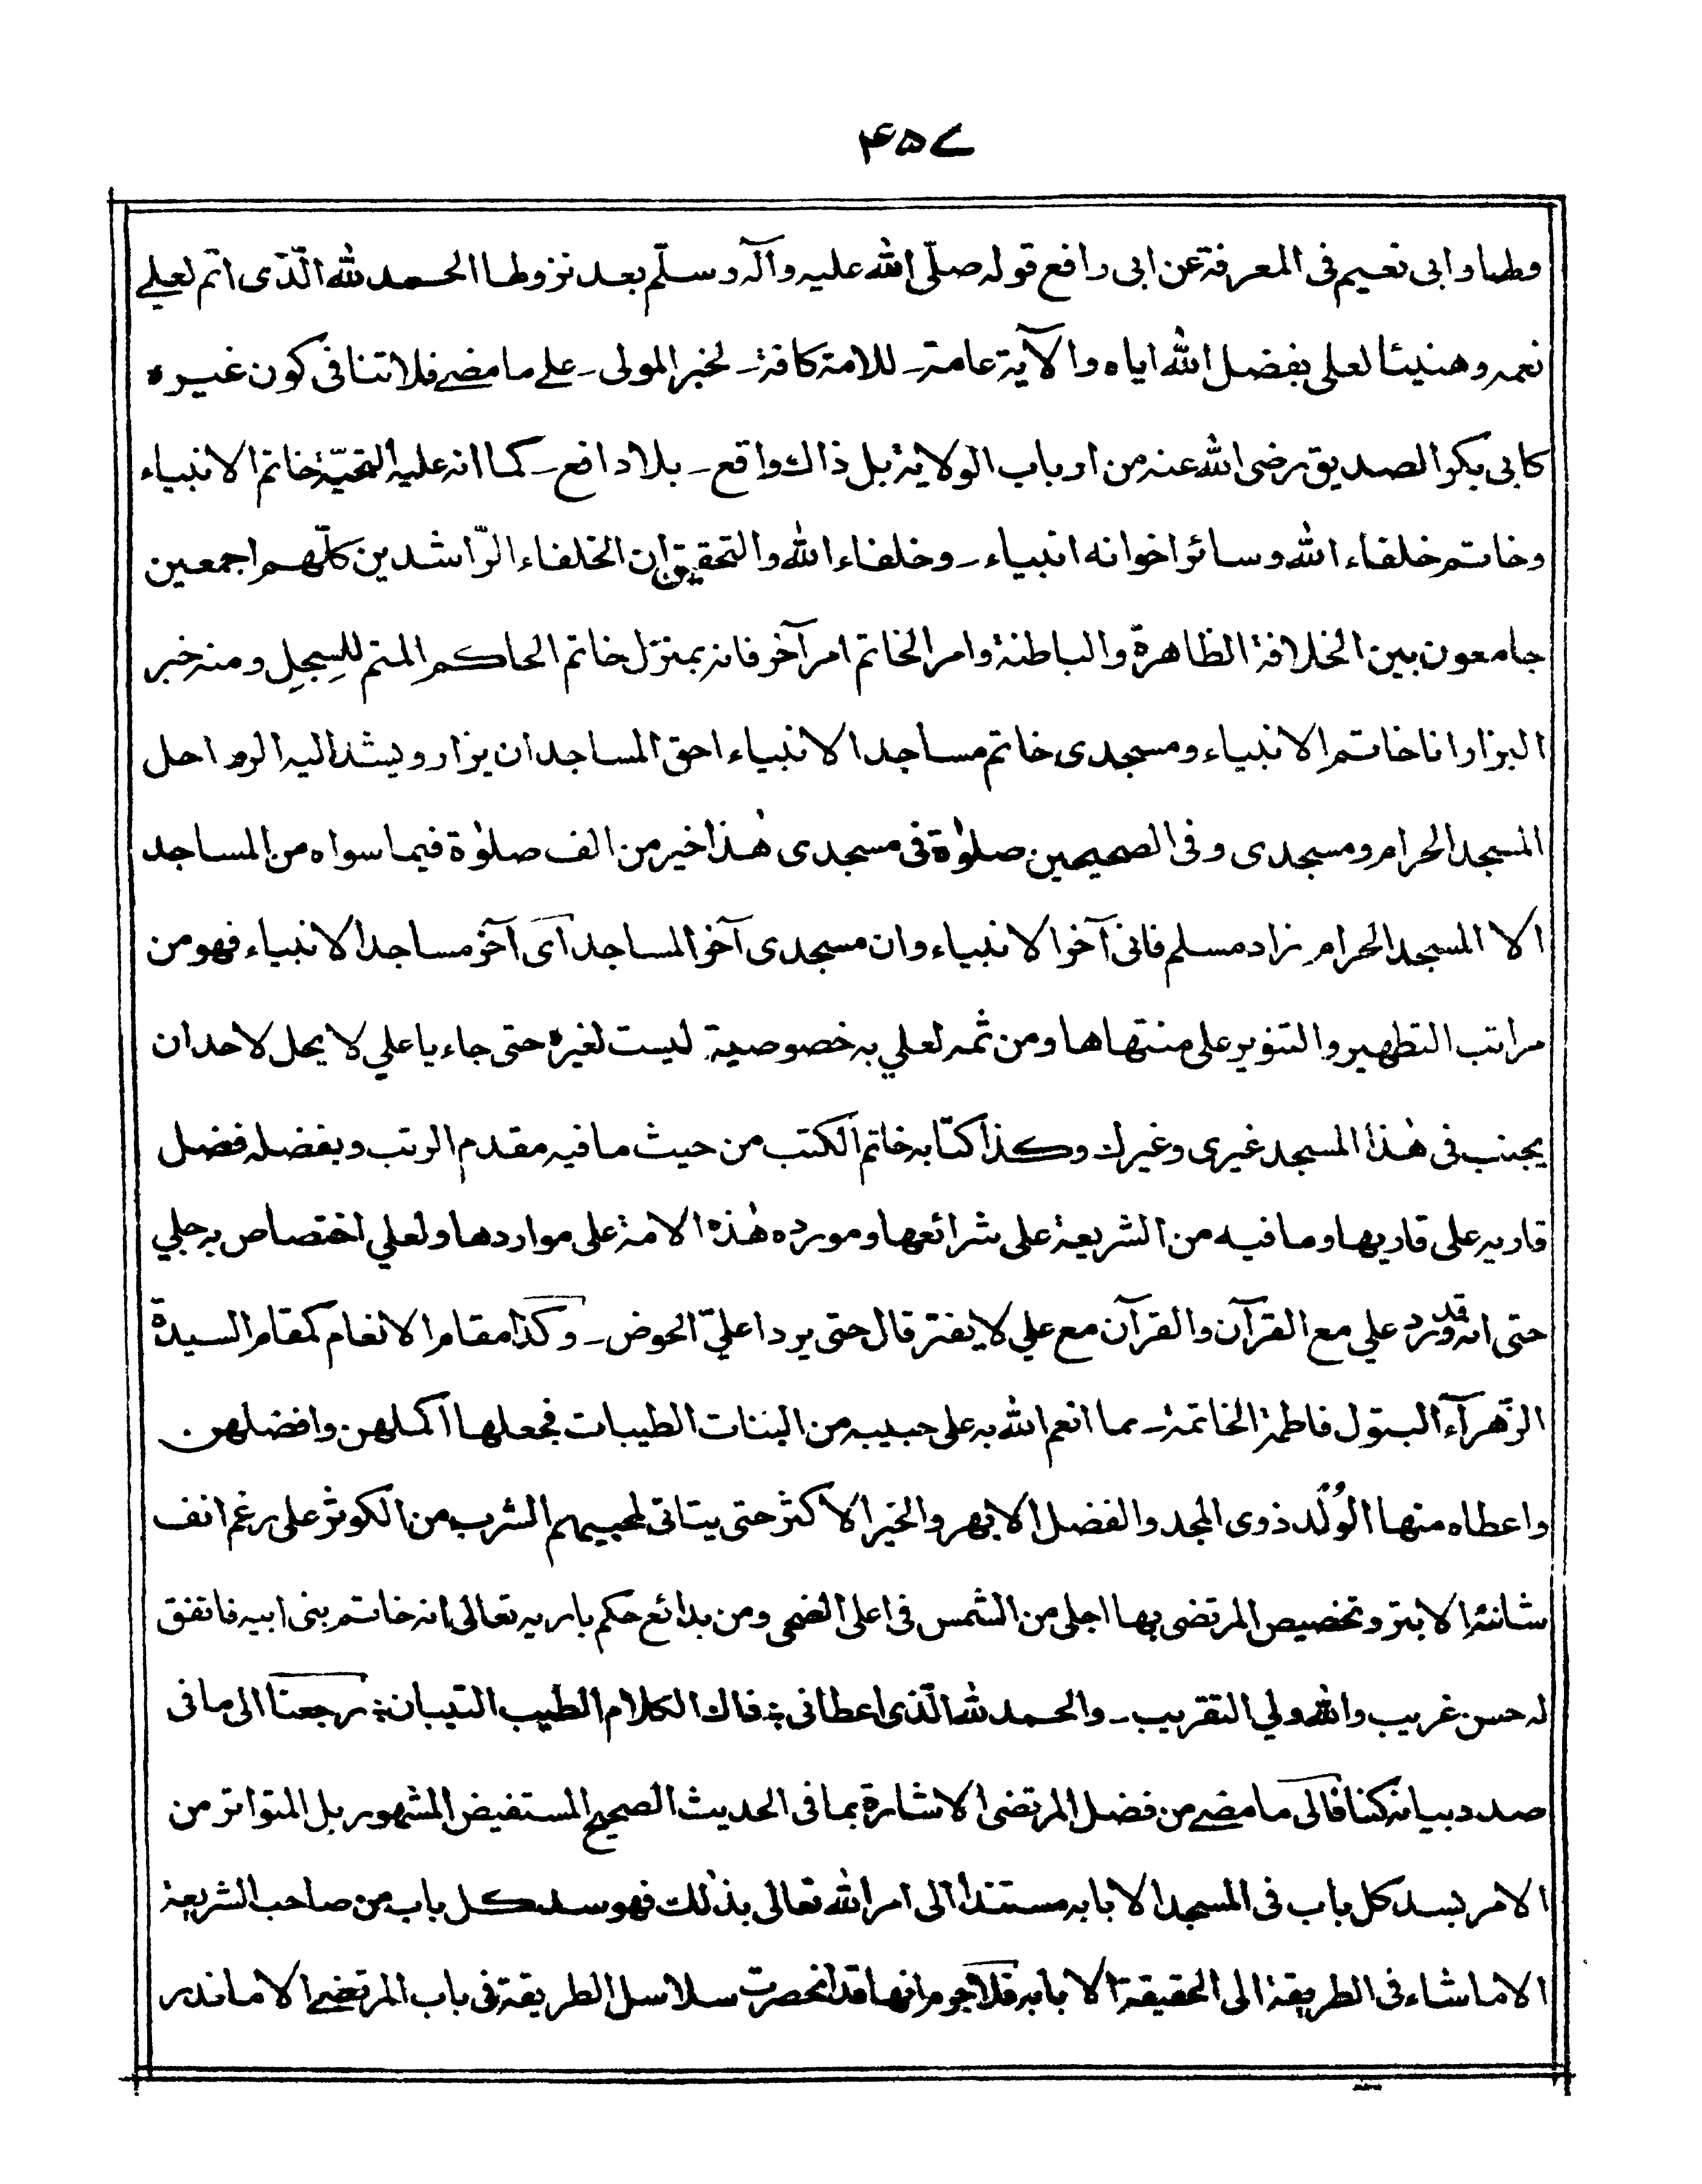 ۴۵۷
وطبا وابی نعیم فی المعرفة عن ابی رافع قوله صلّی الله علیه وآله وسلّم بعد نزولها الحمد لله الّذی اتم لعلی
نعمه وهنیئا لعلی بفضل الله ایاه والآیة عامة۔ للامة کافة۔ لخبر المولی۔ علی ما مضی فلا تنافی کون غیره
کابی بکر الصدیق رضی الله عنه من ارباب الولایة بل ذاك واقع۔ بلا دافع۔ کما انه علیه التحیّة خاتم الانبیاء
وخاتم خلفاء الله وسائر اخوانه انبیاء۔ وخلفاء الله والتحقیق ان الخلفاء الرّاشدین کلّهم اجمعین
جامعون بین الخلافة الظاهرة والباطنة وامر الخاتم امر آخر فانه بمنزل خاتم الحاکم المتم للسِجِل ومنه خبر
البزار انا خاتم الانبیاء ومسجدی خاتم مساجد الانبیاء احق المساجد ان یزار ویشد الیه الرواحل
المسجد الحرام ومسجدی وفی الصحیحین صلوٰة فی مسجدی هٰذا خیر من الف صلوٰة فیما سواه من المساجد
الا المسجد الحرام زاد مسلم فانی آخر الانبیاء وان مسجدی آخر المساجد ای آخر مساجد الانبیاء فهو من
مراتب التطهیر والتنویر علی منتهاها ومن ثمه لعلی به خصوصیة لیست لغیره حتی جاء یا علی لا یحل لاحد ان
یجنب فی هٰذا المسجد غیری وغیرك وکذا کتابه خاتم الکتب من حیث ما فیه مقدم الرتب وبفضله فضل
قاریه علی قاریها وما فیه من الشریعة علی شرائعها ومورده هٰذه الامة علی مواردها ولعلی اختصاص به جلی
حتی انه قد ورد علی مع القرآن والقرآن مع علی لا یفترقان حتی یردا علیّ الحوض۔ وکذا مقام الانعام کمقام السیدة
الزّهرآء البتول فاطمة الخاتمة۔ مما انعم الله به علی حبیبه من البنات الطیبات فجعلها اکملهن وافضلهن
واعطاه منها الوُلْد ذوی المجد والفضل الابهر والخیر الاکثر حتی یتاتی لمحبیهم الشرب من الکوثر علی رغم انف
شانئه الابتر وتخصیص المرتضی بها اجلی من الشمس فی اعلی الضحی ومن بدائع حکم باریه تعالی انه خاتم بنی ابیه فاتفق
له حسن غریب والله ولی التقریب۔ والحمد لله الّذی اعطانی ؛ فاك الکلام الطیب التیبان ؛ رجعنا الی ما فی
صدد بیانه کنا فالی ما مضی من فضل المرتضی الاشارة بما فی الحدیث الصحیح المستفیض المشهور بل المتواتر من
الامر بسد کل باب فی المسجد الا بابه مستندا الی امر الله تعالی بذٰلك فهو سد کل باب من صاحب الشریعة
الا ما شاء فی الطریقة الی الحقیقة الا بابه فلا جرم انها قد انحصرت سلاسل الطریقة فی باب المرتضی الا ما ندر